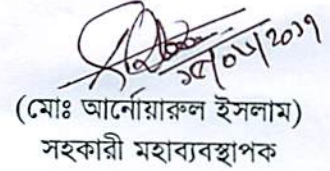 ১৫/০৬/২০১৭
(মোঃ আনোয়ারুল ইসলাম)
সহকারী মহাব্যবস্থাপক